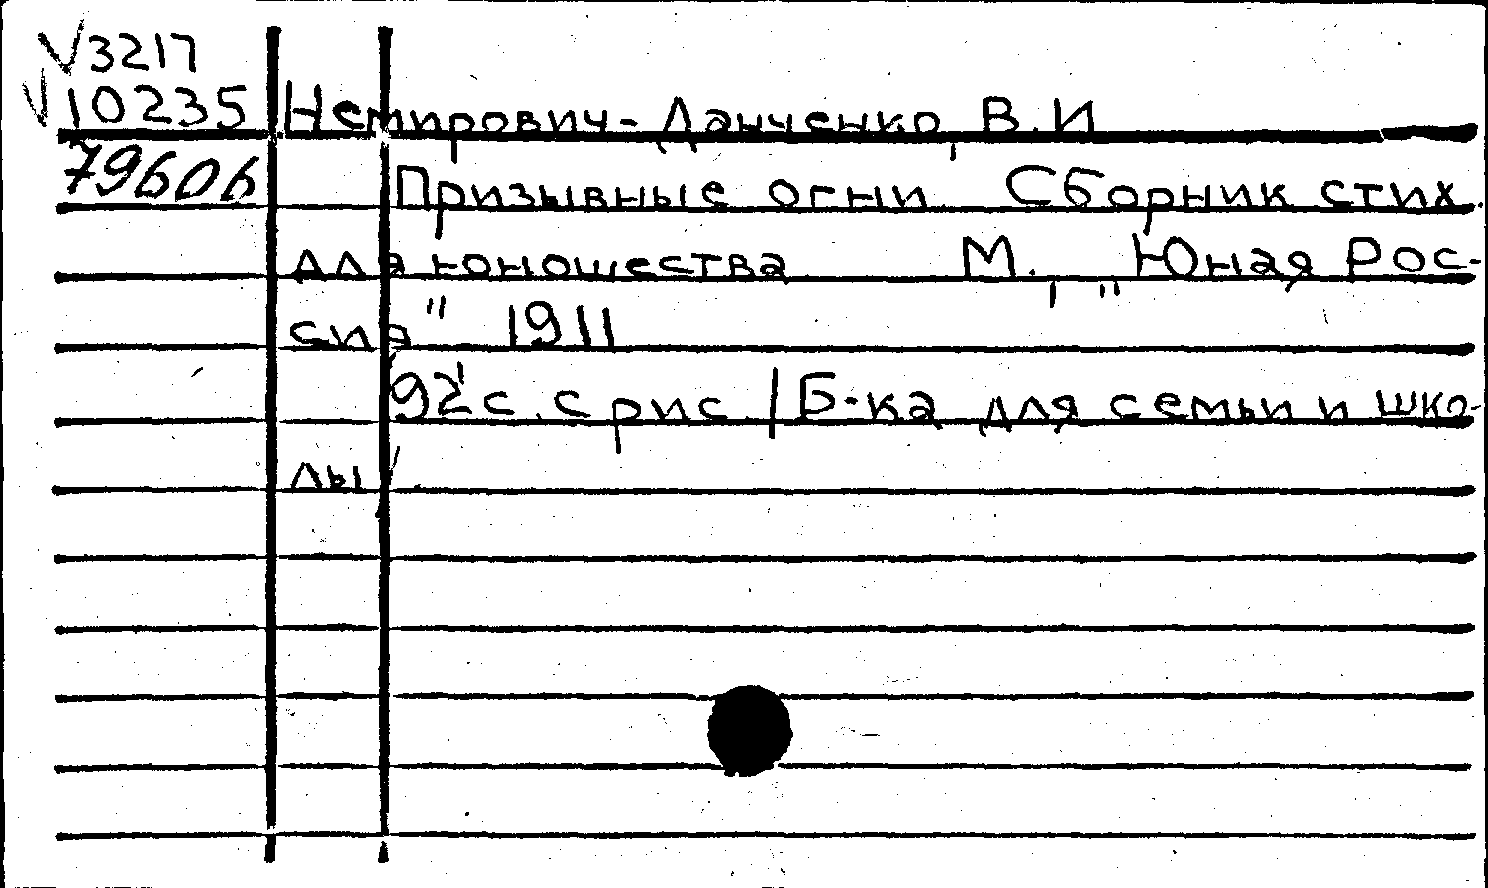 V 3217
V 10235 Немирович-Данченко, В.И.
79606 Призывные огни. Сборник стих.
для юношества М., "Юная Рос-
сия" 1911
92 с. с рис. /Б-ка для семьи и шко-
лы/.